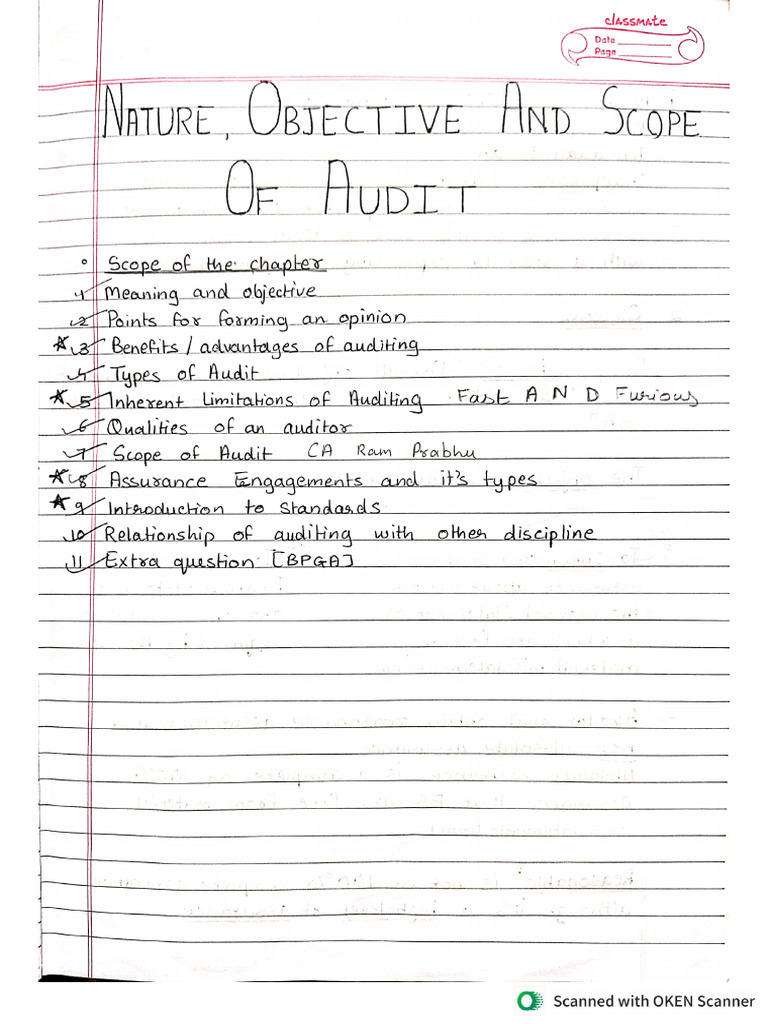 classmate
Date
Page
NATURE, OBJECTIVE AND SCOPE
OF AUDIT
° Scope of the chapter
1 Meaning and objective
2 Points for forming an opinion
☆ 3 Benefits / advantages of auditing
4 Types of Audit
☆ 5 Inherent Limitations of Auditing Fast A N D Furious
6 Qualities of an auditor
7 Scope of Audit CA Ram Prabhu
☆ 8 Assurance Engagements and it's types
☆ 9 Introduction to standards
10 Relationship of auditing with other discipline
11 Extra question [BPGA]
Scanned with OKEN Scanner